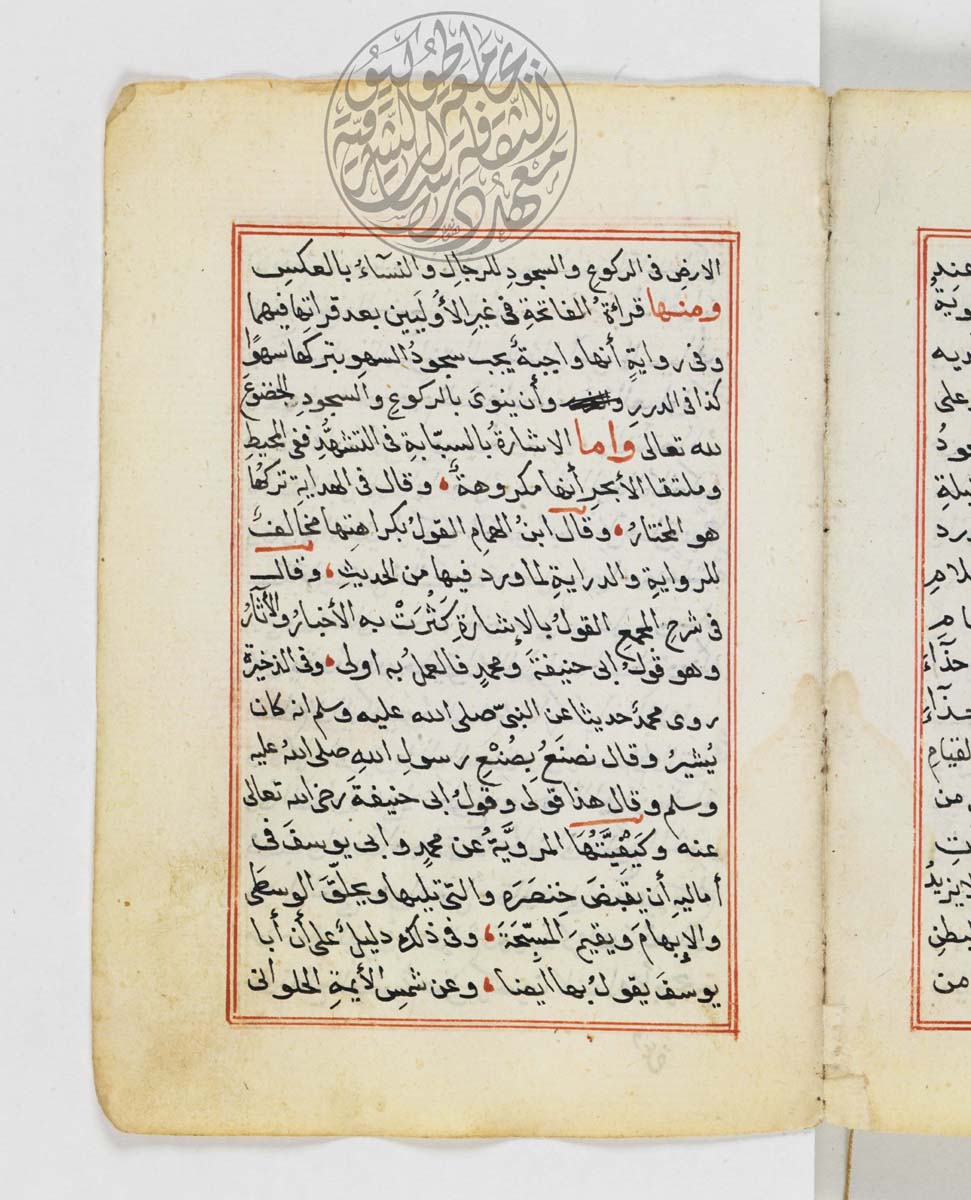 الارض فى الركوع والسجودِ للرجالِ والنسآءُ بالعكسِ
ومنها قراءةُ الفاتحةِ فى غيرِ الأُولَيين بعد قراتِها فيهما
وفى روايةٍ أنها واجبةٌ يجب سجودُ السهوِ بتركها سهوًا
كذا فى الدررِ وأن ينوىَ بالركوعِ والسجودِ الخضوعَ
لله تعالى واما الاشارةُ بالسبّابةِ فى التشهُّدِ ففى المحيطِ
وملتقا الأبحرِ أنها مكروهةٌ، وقال فى الهدايةِ تركُها
هو المختارُ، وقال ابنُ الهمامِ القولُ بكراهتِها مخالفٌ
للروايةِ والدرايةِ لما ورد فيها من الحديثِ، وقال
فى شرحِ المجمعِ القولُ بالإشارةِ كَثُرَتْ به الأخبارُ والآثارُ
وهو قولُ ابى حنيفةَ ومحمدٍ فالعملُ به اولى، وفى الذخيرة
روى محمدٌ حديثا عن النبىّ صلى الله عليه وسلم انه كان
يُشيرُ وقال نصنَعُ بصُنْعِ رسولِ اللهِ صلى اللهُ عليه
وسلم وقال هذا قولى وقولُ ابى حنيفةَ رضى الله تعالى
عنه وكَيفِيَّتُهَا المرويَّةُ عن محمدٍ وابى يوسفَ فى
أماليهِ أن يقبضَ خِنصَرَه والتى تليها ويحلّقَ الوسطَى
والإبهامَ ويقيمَ المسبِّحَةَ، وفى ذلك دليلٌ على أن أبا
يوسفَ يقولُ بها ايضا، وعن شمسِ الأيمةِ الحلوانى
عند
ديه
على
من